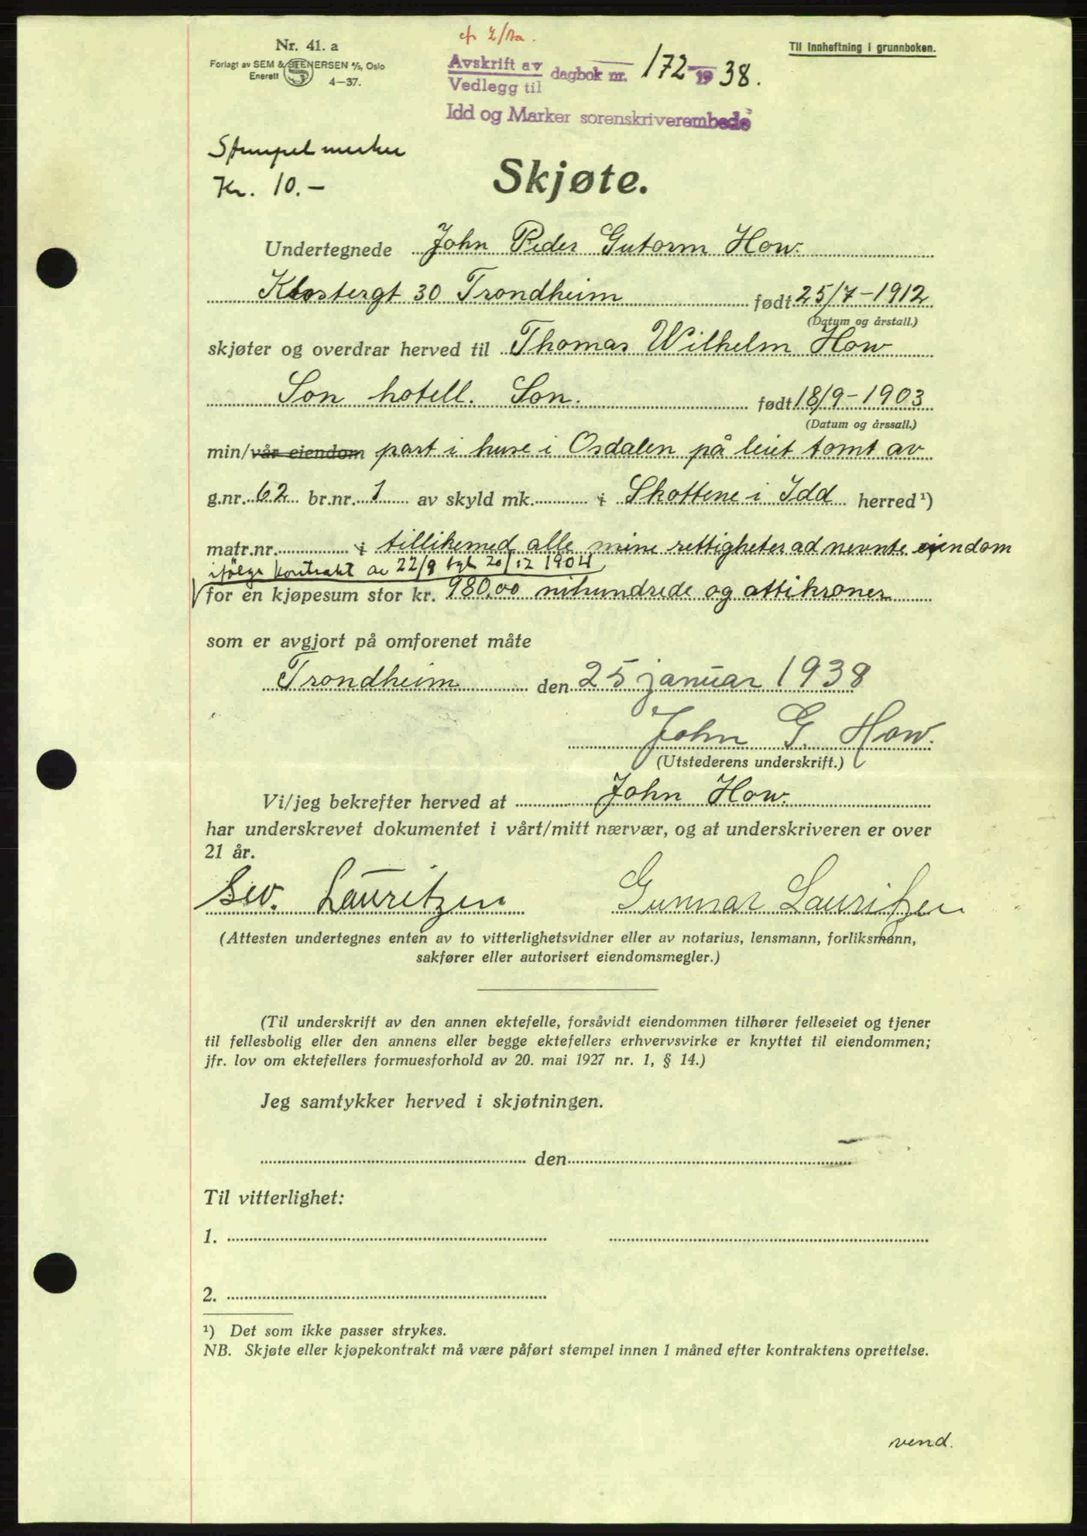 Nr. 41. a
Forlagt av SEM & STENERSEN A/S, Oslo
Enerett
4—37.
Til innheftning i grunnboken.
Avskrift av
Vedlegg til
dagbok nr. 172 1938.
Idd og Marker sorenskriverembede
Stempelmerke
Kr. 10.-
Skjøte.
Undertegnede John Peder Gutorm How.
Klostergt 30 Trondheim født 25/7-1912
(Datum og årstall.)
skjøter og overdrar herved til Thomas Wilhelm How
Son hotell. Son. født 18/9-1903
(Datum og årssall.)
min/vår eiendom part i huse i Osdalen på leiet tomt av
g.nr. 62 br.nr. 1 av skyld mk. i Skottene i Idd herred ¹)
matr.nr. i tillikemed alle mine rettigheter ad nevnte eiendom
ifølge kontrakt av 22/9 tgl 20/12 1904
for en kjøpesum stor kr. 980,00 nihundrede og åttikroner
som er avgjort på omforenet måte
Trondheim den 25 januar 1938
John G. How.
(Utstederens underskrift.)
Vi/jeg bekrefter herved at John How.
har underskrevet dokumentet i vårt/mitt nærvær, og at underskriveren er over
21 år.
Sev. Lauritzen Gunnar Lauritzen
(Attesten undertegnes enten av to vitterlighetsvidner eller av notarius, lensmann, forliksmann,
sakfører eller autorisert eiendomsmegler.)
(Til underskrift av den annen ektefelle, forsåvidt eiendommen tilhører felleseiet og tjener
til fellesbolig eller den annens eller begge ektefellers erhvervsvirke er knyttet til eiendommen;
jfr. lov om ektefellers formuesforhold av 20. mai 1927 nr. 1, § 14.)
Jeg samtykker herved i skjøtningen.
den
Til vitterlighet:
1.
2.
¹) Det som ikke passer strykes.
NB. Skjøte eller kjøpekontrakt må være påført stempel innen 1 måned efter kontraktens oprettelse.
vend.